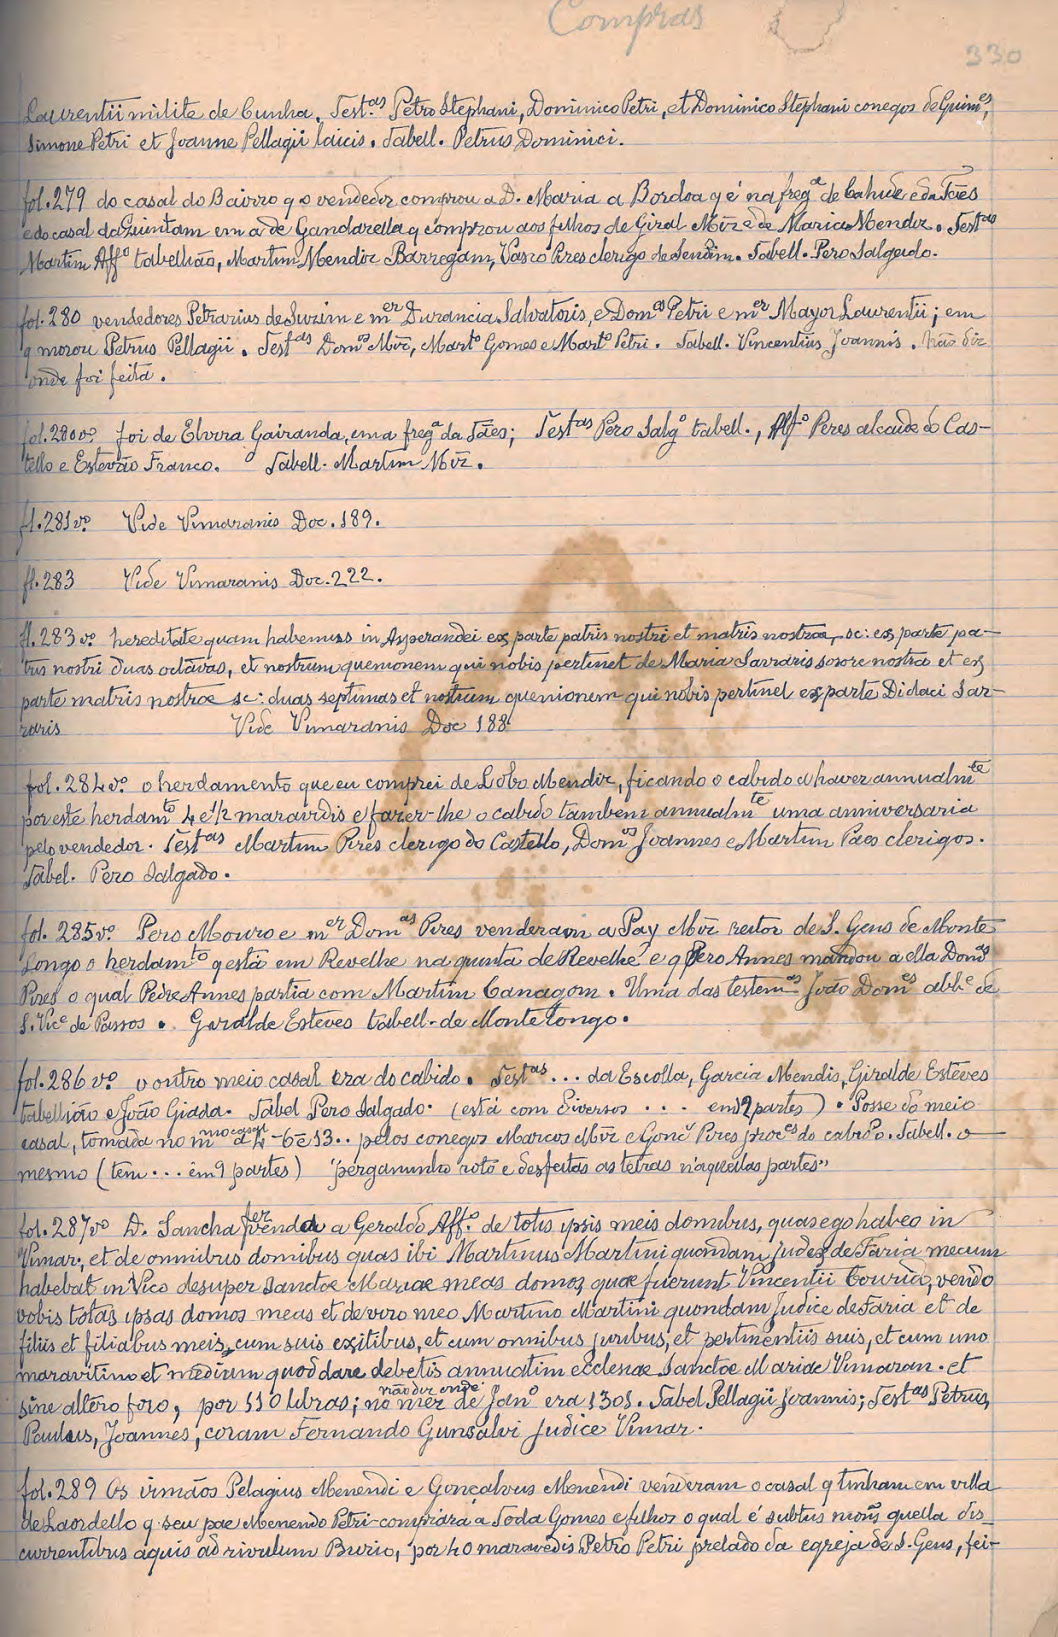 Compras
330
Laurentii milite de Cunha. Test.as Petro Stephani, Dominico Petri, et Dominico Stephani conegos de Guim.es,
Simone Petri et Joanne Pellagii laicis. Tabell. Petrus Dominici.
fol. 279 do casal do Bairro q o vendedor comprou a D. Maria a Bordoa q é na freg.a de Cahude e da Tães
e do casal da Quintam em a de Gandarella q comprou aos filhos de Giral Mīz e de Maria Mendiz. Test.as
Martim Aff.o tabellião, Martim Mendiz Barregam, Vasco Pires clerigo de Sendim. Tabell. Pero Salgado.
fol. 280 vendedores Petrarius de Suzim e m.er Durancia Salvatoris, e Dom.as Petri e m.er Mayor Laurentii; em
q morou Petrus Pellagii. Test.as Dom.os Mīz, Mart.o Gomes e Mart.o Petri. Tabell. Vincentius Joannis. Não diz
onde foi feita.
fol. 280 v.o foi de Elvira Gairanda, em a freg.a da Tães; Test.as Pero Salg.o tabell., Aff.o Peres alcaide do Cas-
tello e Estevão Franco. Tabell. Martim Mīz.
fl. 281 v.o Vide Vimaranis Doc. 189.
fl. 283 Vide Vimaranis Doc. 222.
fl. 283 v.o hereditate quam habemus in Asperandei ex parte patris nostri et matris nostrae, sc: ex parte pa-
tris nostri duas octavas, et nostrum quenionem qui nobis pertinet de Maria Sarraris sorore nostra et ex
parte matris nostrae sc: duas septimas et nostrum quenionem qui nobis pertinet ex parte Didaci Sar-
raris Vide Vimaranis Doc 188
fol. 284 v.o o herdamento que eu comprei de Lobo Mendiz, ficando o cabido a haver annualm.te
por este herdam.to 4 e 1/2 maravidis e fazer-lhe o cabido tambem annualm.te uma anniversaria
pelo vendedor. Test.as Martim Pires clerigo do Castello, Dom.os Joannes e Martim Paes clerigos.
Tabel. Pero Salgado.
fol. 285 v.o Pero Mouro e m.er Dom.as Pires venderam a Pay Mīz reitor de S. Gens de Monte
Longo o herdam.to q está em Revelhe na quinta de Revelhe e q Pero Annes mandou a ella Dom.as
Pires o qual Pedre Annes partia com Martim Canagom. Uma das testem.as João Dom.es abb.e de
S. Vic.e de Passos. Geralde Esteves tabell. de Monte longo.
fol. 286 v.o o outro meio casal era do cabido. Test.as ... da Escolla, Garcia Mendis, Giralde Esteves
tabellião e João Giada. Tabel Pero Salgado. (está com diversos ... em 12 partes). Posse do meio
casal, tomada no m.mo casal a 4-6 e 13.. pelos conegos Marcos Mīz e Gonç.o Pires proc.es do cabido. Tabell. o
mesmo (tem ... em 9 partes) "pergaminho roto e desfeitas as letras n'aquellas partes"
fol. 287 v.o D. Sancha fez venda a Geraldo Aff.o de totis ipsis meis domibus, quas ego habeo in
Vimar, et de omnibus domibus quas ibi Martinus Martini quondam judex de Faria mecum
habebat in Vico desuper Sanctae Mariae meas domos, quae fuerunt Vincentii Couria, vendo
vobis totas ipsas domos meas et de viro meo Martino Martini quondam Judice de Faria et de
filiis et filiabus meis, cum suis exitibus, et cum omnibus juribus, et pertinentiis suis, et cum uno
maravitino et medium quod dare debetis annuatim ecclesiae Sanctae Mariae Vimaran. et
sine altero foro, por 110 libras; não diz onde no mez de Jan.o era 1301. Tabel Pellagii Joannis; Test.as Petrus,
Paulus, Joannes, coram Fernando Gunsalvi Judice Vimar.
fol. 289 Os irmãos Pelagius Menendi e Gonçalvus Menendi venderam o casal q tinham em villa
de Laordello q seu pae Menendo Petri comprára a Toda Gomes e filhos o qual é subtus mons quella dis-
currentibus aquis ad rivulum Burio, por 40 maravedis Petro Petri prelado da egreja de S. Gens, fei-